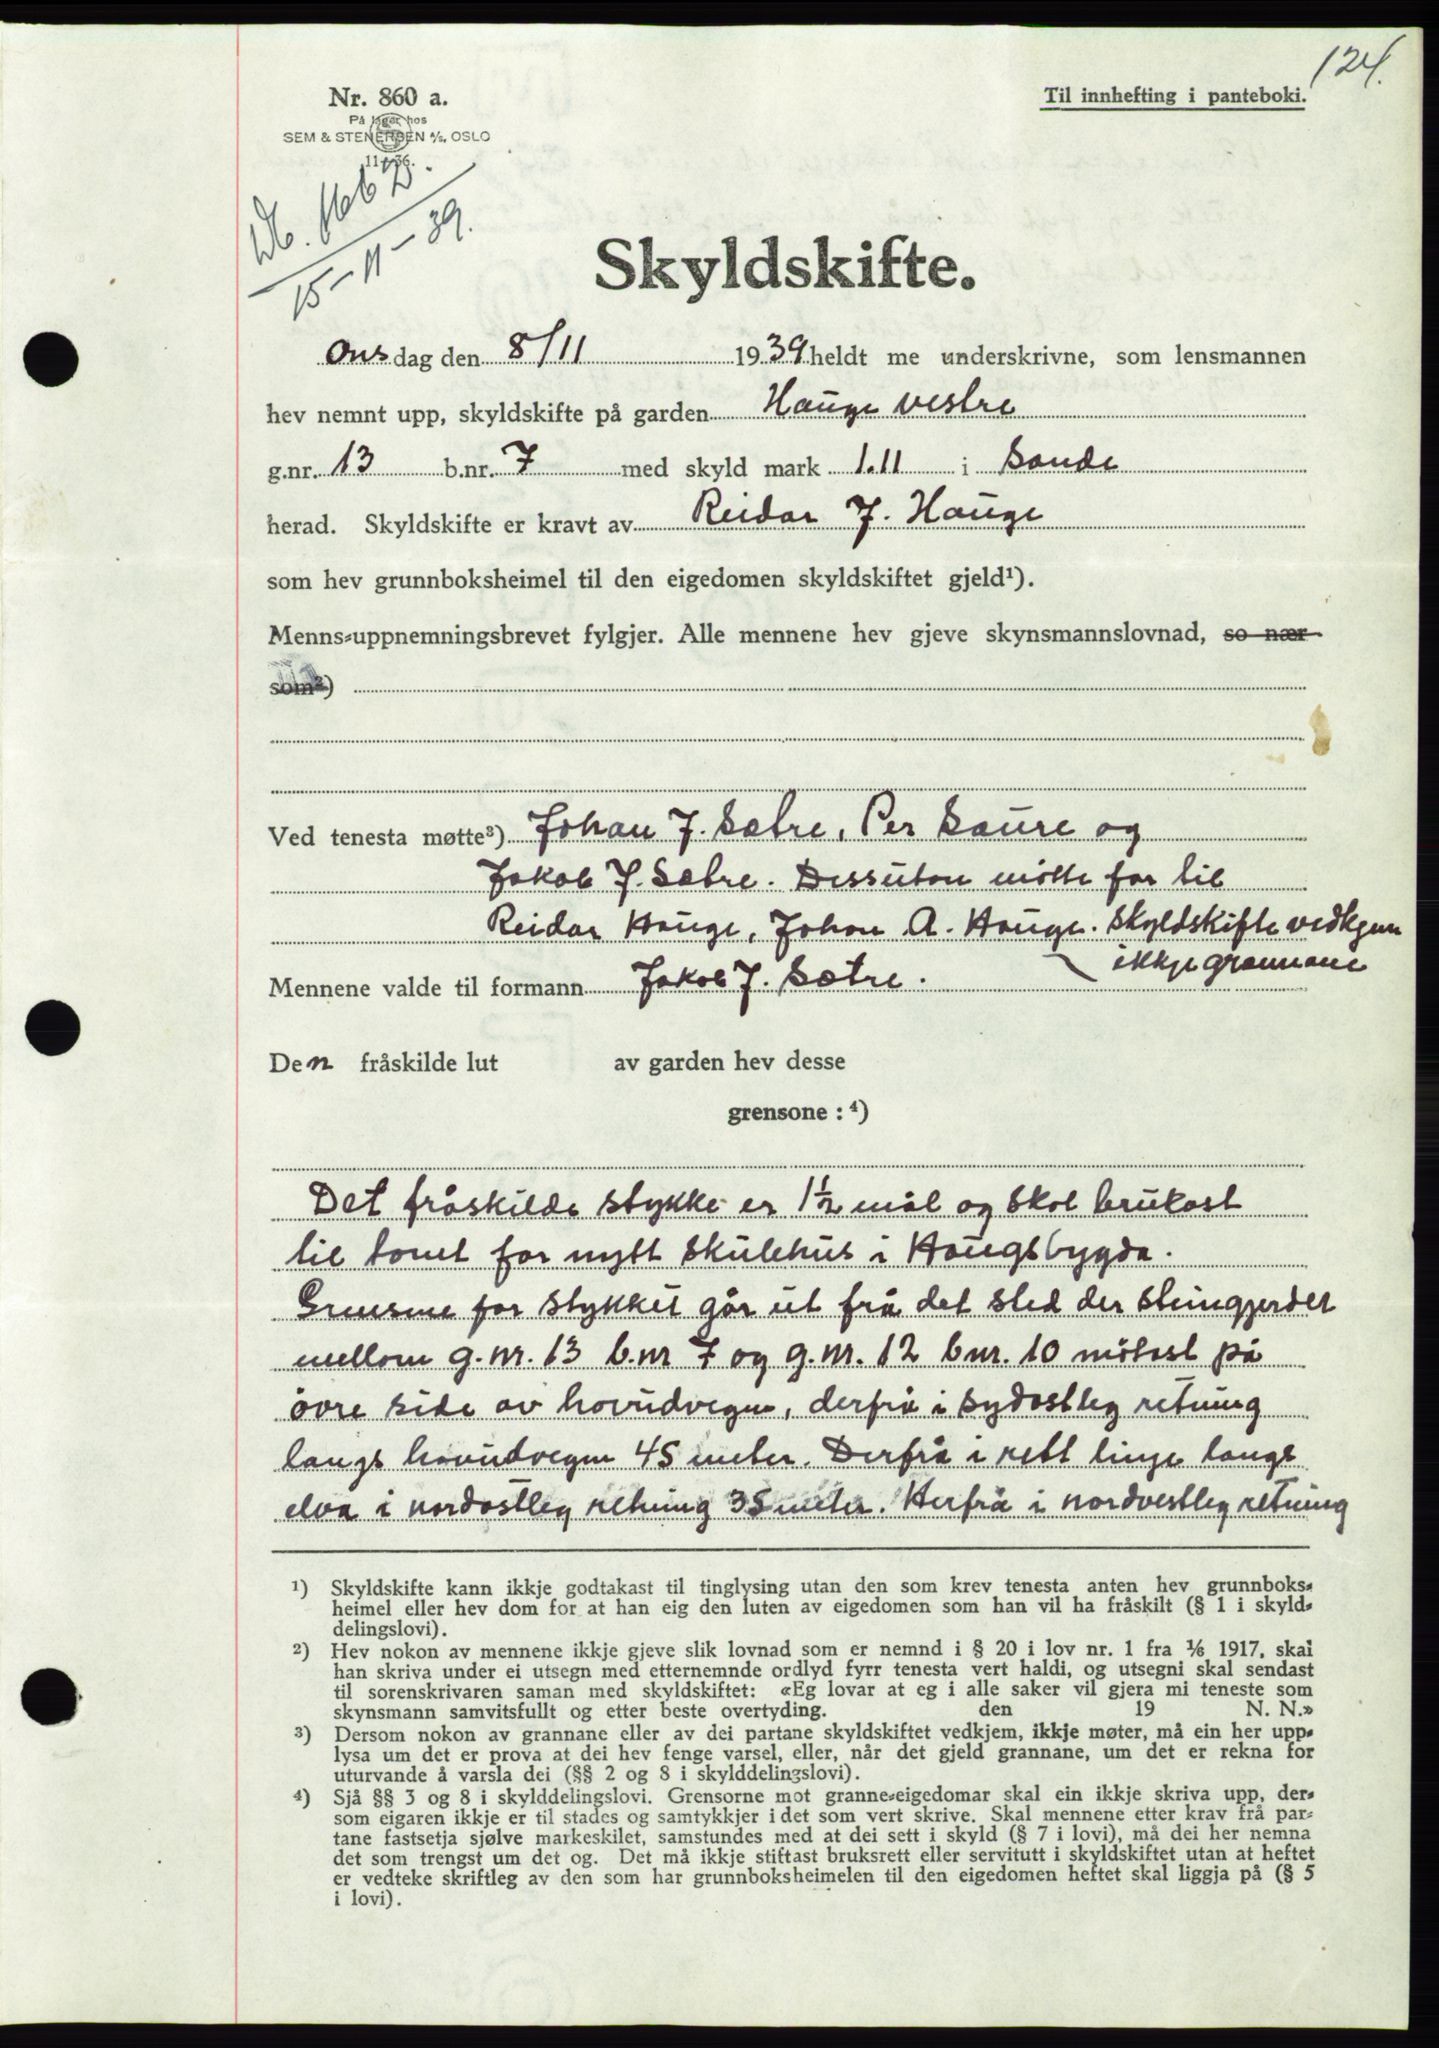 124.
Nr. 860 a.
Til innhefting i panteboki.
På lager hos
SEM & STENERSEN A/S, OSLO
11-36.
15-11-39.
Skyldskifte.
Onsdag den 8/11 1939 heldt me underskrivne, som lensmannen
hev nemnt upp, skyldskifte på garden Hauge vestre
g.nr. 13 b.nr. 7 med skyld mark 1.11 i Sande
herad. Skyldskifte er kravt av Reidar J. Hauge
som hev grunnboksheimel til den eigedomen skyldskiftet gjeld¹).
Menns-uppnemningsbrevet fylgjer. Alle mennene hev gjeve skynsmannslovnad, so nær
som²)
Ved tenesta møtte³) Johan J. Sætre, Per Saure og
Jakob J. Sætre. Dessutan møtte for til
Reidar Hauge, Johan A. Hauge. Skyldskifte vedkjem
ikkje grannane
Mennene valde til formann Jakob J. Sætre.
Den fråskilde lut av garden hev desse
grensone : ⁴)
Det fråskilde stykke er 1½ mål og skal brukast
til tomt for nytt skulehus i Haugsbygda.
Grensene for stykket går ut frå det sted der steingjerdet
mellom g.nr. 13 b.nr 7 og g.nr. 12 bnr. 10 møtast på
øvre side av hovudvegen, derfrå i sydostleg retning
langs hovudvegen 45 meter. Derfrå i rett linje langs
elva i nordostleg retning 35 meter. Herfrå i nordvestleg retning
¹) Skyldskifte kann ikkje godtakast til tinglysing utan den som krev tenesta anten hev grunnboks-
heimel eller hev dom for at han eig den luten av eigedomen som han vil ha fråskilt (§ 1 i skyld-
delingslovi).
²) Hev nokon av mennene ikkje gjeve slik lovnad som er nemnd i § 20 i lov nr. 1 fra 1/6 1917, skal
han skriva under ei utsegn med etternemnde ordlyd fyrr tenesta vert haldi, og utsegni skal sendast
til sorenskrivaren saman med skyldskiftet: «Eg lovar at eg i alle saker vil gjera mi teneste som
skynsmann samvitsfullt og etter beste overtyding. den 19 N. N.»
³) Dersom nokon av grannane eller av dei partane skyldskiftet vedkjem, ikkje møter, må ein her upp-
lysa um det er prova at dei hev fenge varsel, eller, når det gjeld grannane, um det er rekna for
uturvande å varsla dei (§§ 2 og 8 i skylddelingslovi).
⁴) Sjå §§ 3 og 8 i skylddelingslovi. Grensorne mot granne-eigedomar skal ein ikkje skriva upp, der-
som eigaren ikkje er til stades og samtykkjer i det som vert skrive. Skal mennene etter krav frå par-
tane fastsetja sjølve markeskilet, samstundes med at dei sett i skyld (§ 7 i lovi), må dei her nemna
det som trengst um det og. Det må ikkje stiftast bruksrett eller servitutt i skyldskiftet utan at heftet
er vedteke skriftleg av den som har grunnboksheimelen til den eigedomen heftet skal liggja på (§ 5
i lovi).